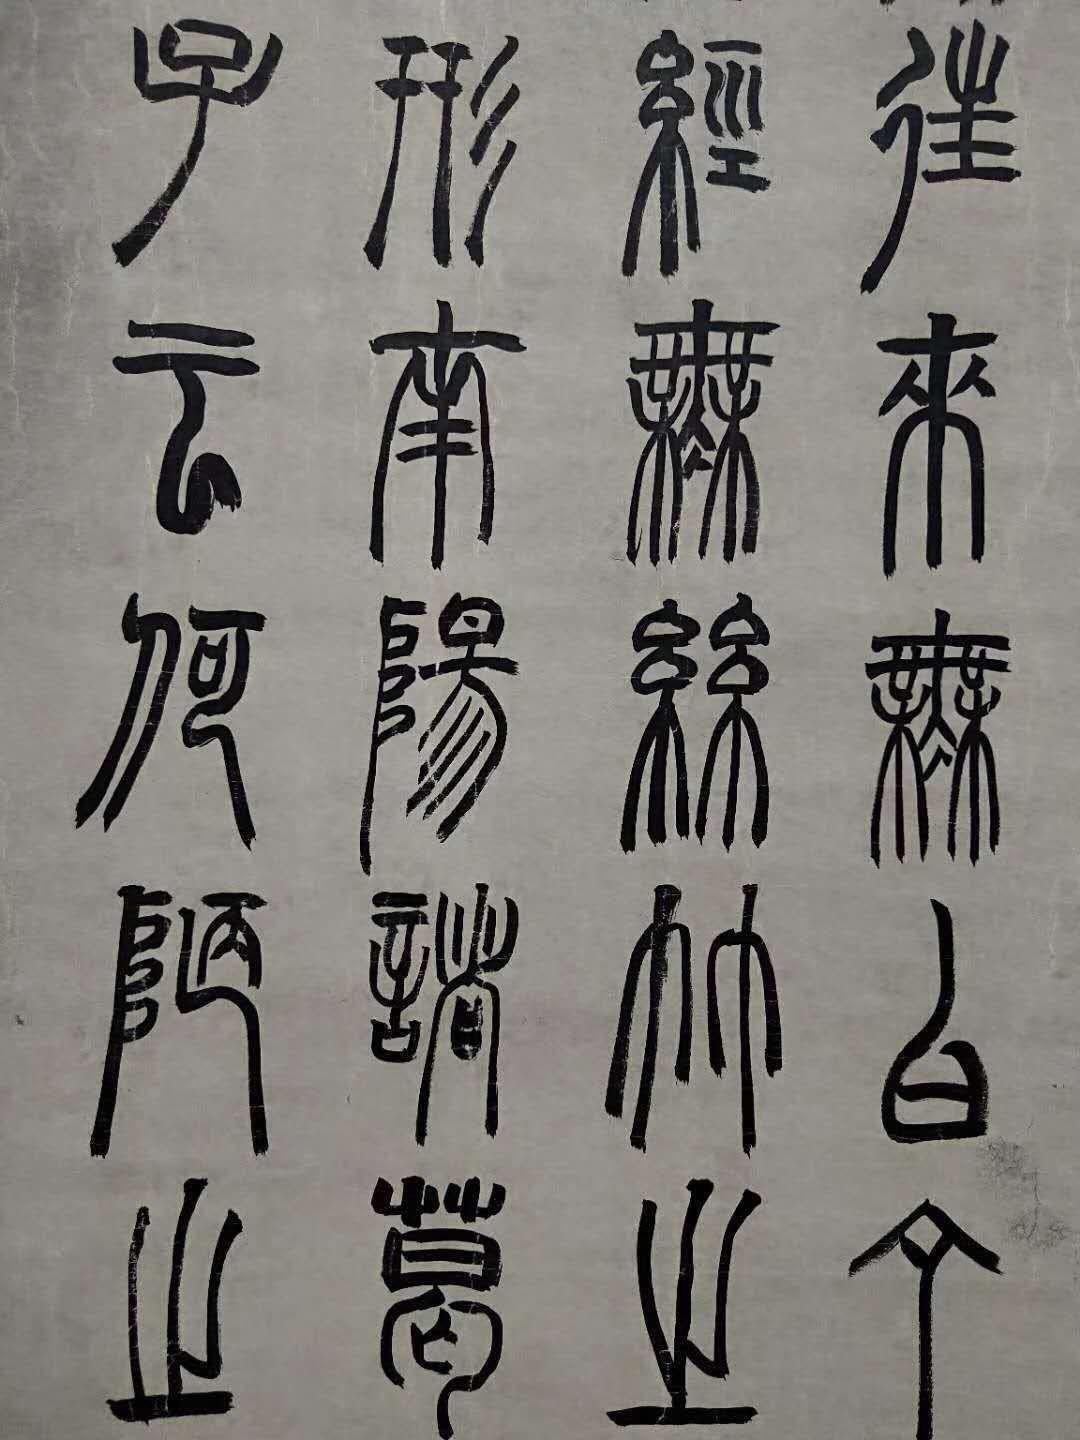 往來無白丁
經無絲竹之
形南陽諸葛
子云何陋之